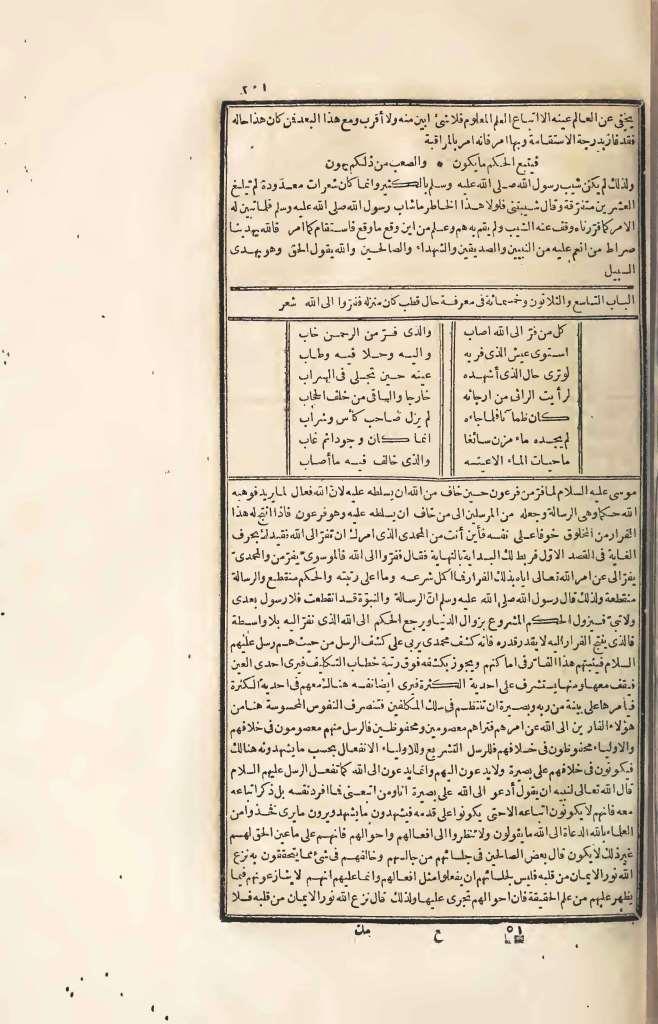 ٢٠١
يخفى عن العالم عينه الا اتباع العلم المعلوم فلا شئ ابين منه ولا أقرب ومع هذا البعد فمن كان هذا حاله
فقد فاز بدرجة الاستقامة وبها امر فانه امر بالمراقبة
فيتبع الحكم ما يكون • والصعب من ذلكم يهون
ولذلك لم يكن شيب رسول الله صلى الله عليه وسلم بالكثير وانما كان شعرات معدودة لم تبلغ
العشرين متفرقة وقال شيبتنى فلولا هذا الخاطر ما شاب رسول الله صلى الله عليه وسلم فلما تبين له
الامر كما قررناه وقف عنه الشيب ولم يقم به هم وعلم من اين وقع ما وقع فاستقام كما امر فالله يهدينا
صراط من انعم عليه من النبيين والصديقين والشهداء والصالحين والله يقول الحق وهو يهدى
السبيل
الباب التاسع والثلاثون وخمسمائة فى معرفة حال قطب كان منزله ففروا الى الله شعر
كل من فر الى الله اصاب والذى فر من الرحمن خاب
استوى عيش الذى فر به واليه وحلا فيه وطاب
لو ترى حال الذى أشهده عينه حين تجلى فى السراب
لرأيت الرائى من ارجائه خارجا والباقى من خلف الحجاب
كان ظمآنا فلما جاءه لم يزل صاحب كأس وشراب
لم يجده ماء مزن سائغا انما كان وجودا ثم غاب
ما حيات الماء الا عينه والذى خالف فيه ما أصاب
موسى عليه السلام لما فر من فرعون حين خاف من الله ان يسلطه عليه لان الله فعال لما يريد فوهبه
الله حكما وهى الرسالة وجعله من المرسلين الى من خاف ان يسلطه عليه وهو فرعون فاذا انتج له هذا
الفرار من المخلوق خوفا على نفسه فأين أنت من المحمدى الذى امرك ان تفر الى الله فقيدك بحرف
الغاية فى القصد الاول فربط لك البداية بالنهاية فقال ففروا الى الله فالموسوى يفر من والمحمدى
يفر الى عن امر الله تعالى اياه بذلك الفرار فما اكمل شرعه وما اعلى رتبته والحكم منقطع والرسالة
منقطعة ولذلك قال رسول الله صلى الله عليه وسلم ان الرسالة والنبوة قد انقطعت فلا رسول بعدى
ولا نبى فيزول الحكم المشروع بزوال الدنيا ويرجع الحكم الى الله الذى نفر اليه بلا واسطة
فالذى ينتج الفرار اليه لا يقدر قدره فانه كشف محمدى يربى على كشف الرسل من حيث هم رسل عليهم
السلام فيثبتهم هذا الفار فى اماكنهم ويجوز بكشفه فوق رتبة خطاب التكليف فيرى احدى العين
فيقف معها ومنها يستشرف على احدية الكثرة فيرى ايضا نفسه هنالك معهم فى احدية الكثرة
فيأمرها على بينة من ربه وبصيرة ان تنتظم فى سلك المكلفين فتنصرف النفوس المحسوسة هنا من
هؤلاء الفارين الى الله عن امرهم فتراهم معصومين ومحفوظين فالرسل منهم معصومون فى خلافهم
والاولياء محفوظون فى خلافهم فللرسل التشريع وللاولياء الانفعال بحسب ما يشهدونه هنالك
فيكونون فى خلافهم على بصيرة ولا يدعون اليهم وانما يدعون الى الله كما تفعل الرسل عليهم السلام
قال الله تعالى لنبيه ان يقول أدعو الى الله على بصيرة انا ومن اتبعنى فما افرد نفسه بل ذكر اتباعه
معه فانهم لا يكونون اتباعه الا حتى يكونوا على قدمه فيشهدون ما يشهد ويرون ما يرى فخذوا من
العلماء بالله الدعاة الى الله ما يقولون ولا تنظروا الى افعالهم واحوالهم فانهم على ما عين الحق لهم
غير ذلك لا يكون قال بعض الصالحين فى جلسائهم من جالسهم وخالفهم فى شئ مما يتحققون به نزع
الله نور الايمان من قلبه فليس لجلسائهم ان يفعلوا مثل افعالهم وانما عليهم انهم لا ينازعونهم فيما
يظهر عليهم من علم الحقيقة فان احوالهم تجرى عليها ولذلك قال نزع الله نور الايمان من قلبه فلا
٥١ ح مك